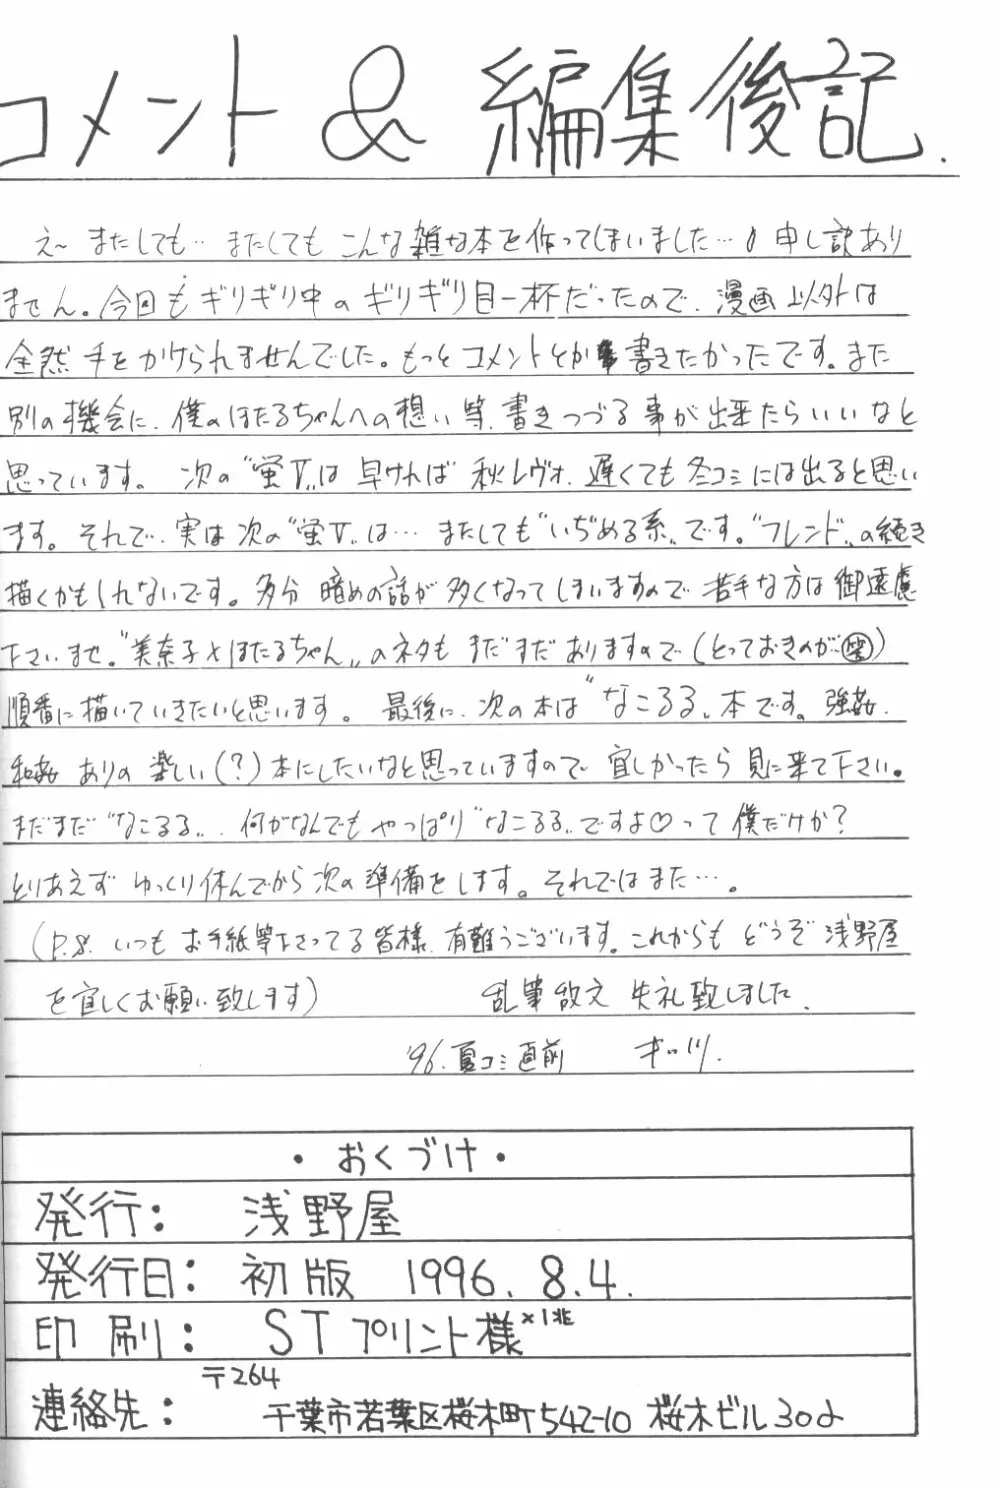 コメント & 編集後記.
え〜 またしても‥ またしても こんな雑な本を作ってしまいました…♪ 申し訳あり
ません。今回も ギリギリ中の ギリギリ目一杯だったので、漫画以外は
全然 手を かけられませんでした。もっと コメントとか 書きたかったです。また
別の機会に、僕の ほたるちゃんへの想い 等、書きつづる 事が 出来たらいいなと
思っています。 次の“蛍Ⅴ„は 早ければ 秋レヴォ、遅くても 冬コミには出ると思い
ます。それで、実は 次の“蛍Ⅴ„は… またしても“いぢめる系„です。“フレンド„の続き
描くかもしれないです。多分 暗めの話が 多くなってしまいますので 苦手な方は 御遠慮
下さいませ。“美奈子とほたるちゃん„のネタも まだまだ ありますので(とっておきのが‥㊤笑)
順番に 描いていきたいと思います。 最後に、次の本は “なこるる„本です。強姦、
和姦 ありの 楽しい(?)本にしたいなと思っていますので 宜しかったら 見に来て下さい。
まだまだ“なこるる„、何がなんでも やっぱり“なこるる„ですよ♡って 僕だけか?
とりあえず ゆっくり休んでから 次の準備をします。それではまた…。
(P.S. いつも お手紙等下さってる皆様、有難うございます。これからも どうぞ 浅野屋
を宜しくお願い致します) 乱筆散文 失礼致しました。
'96.夏コミ直前 キッツ.
・おくづけ・
発行: 浅野屋
発行日: 初版 1996. 8.4.
印刷: STプリント様×1兆
〒264
連絡先: 千葉市若葉区桜木町542-10 桜木ビル